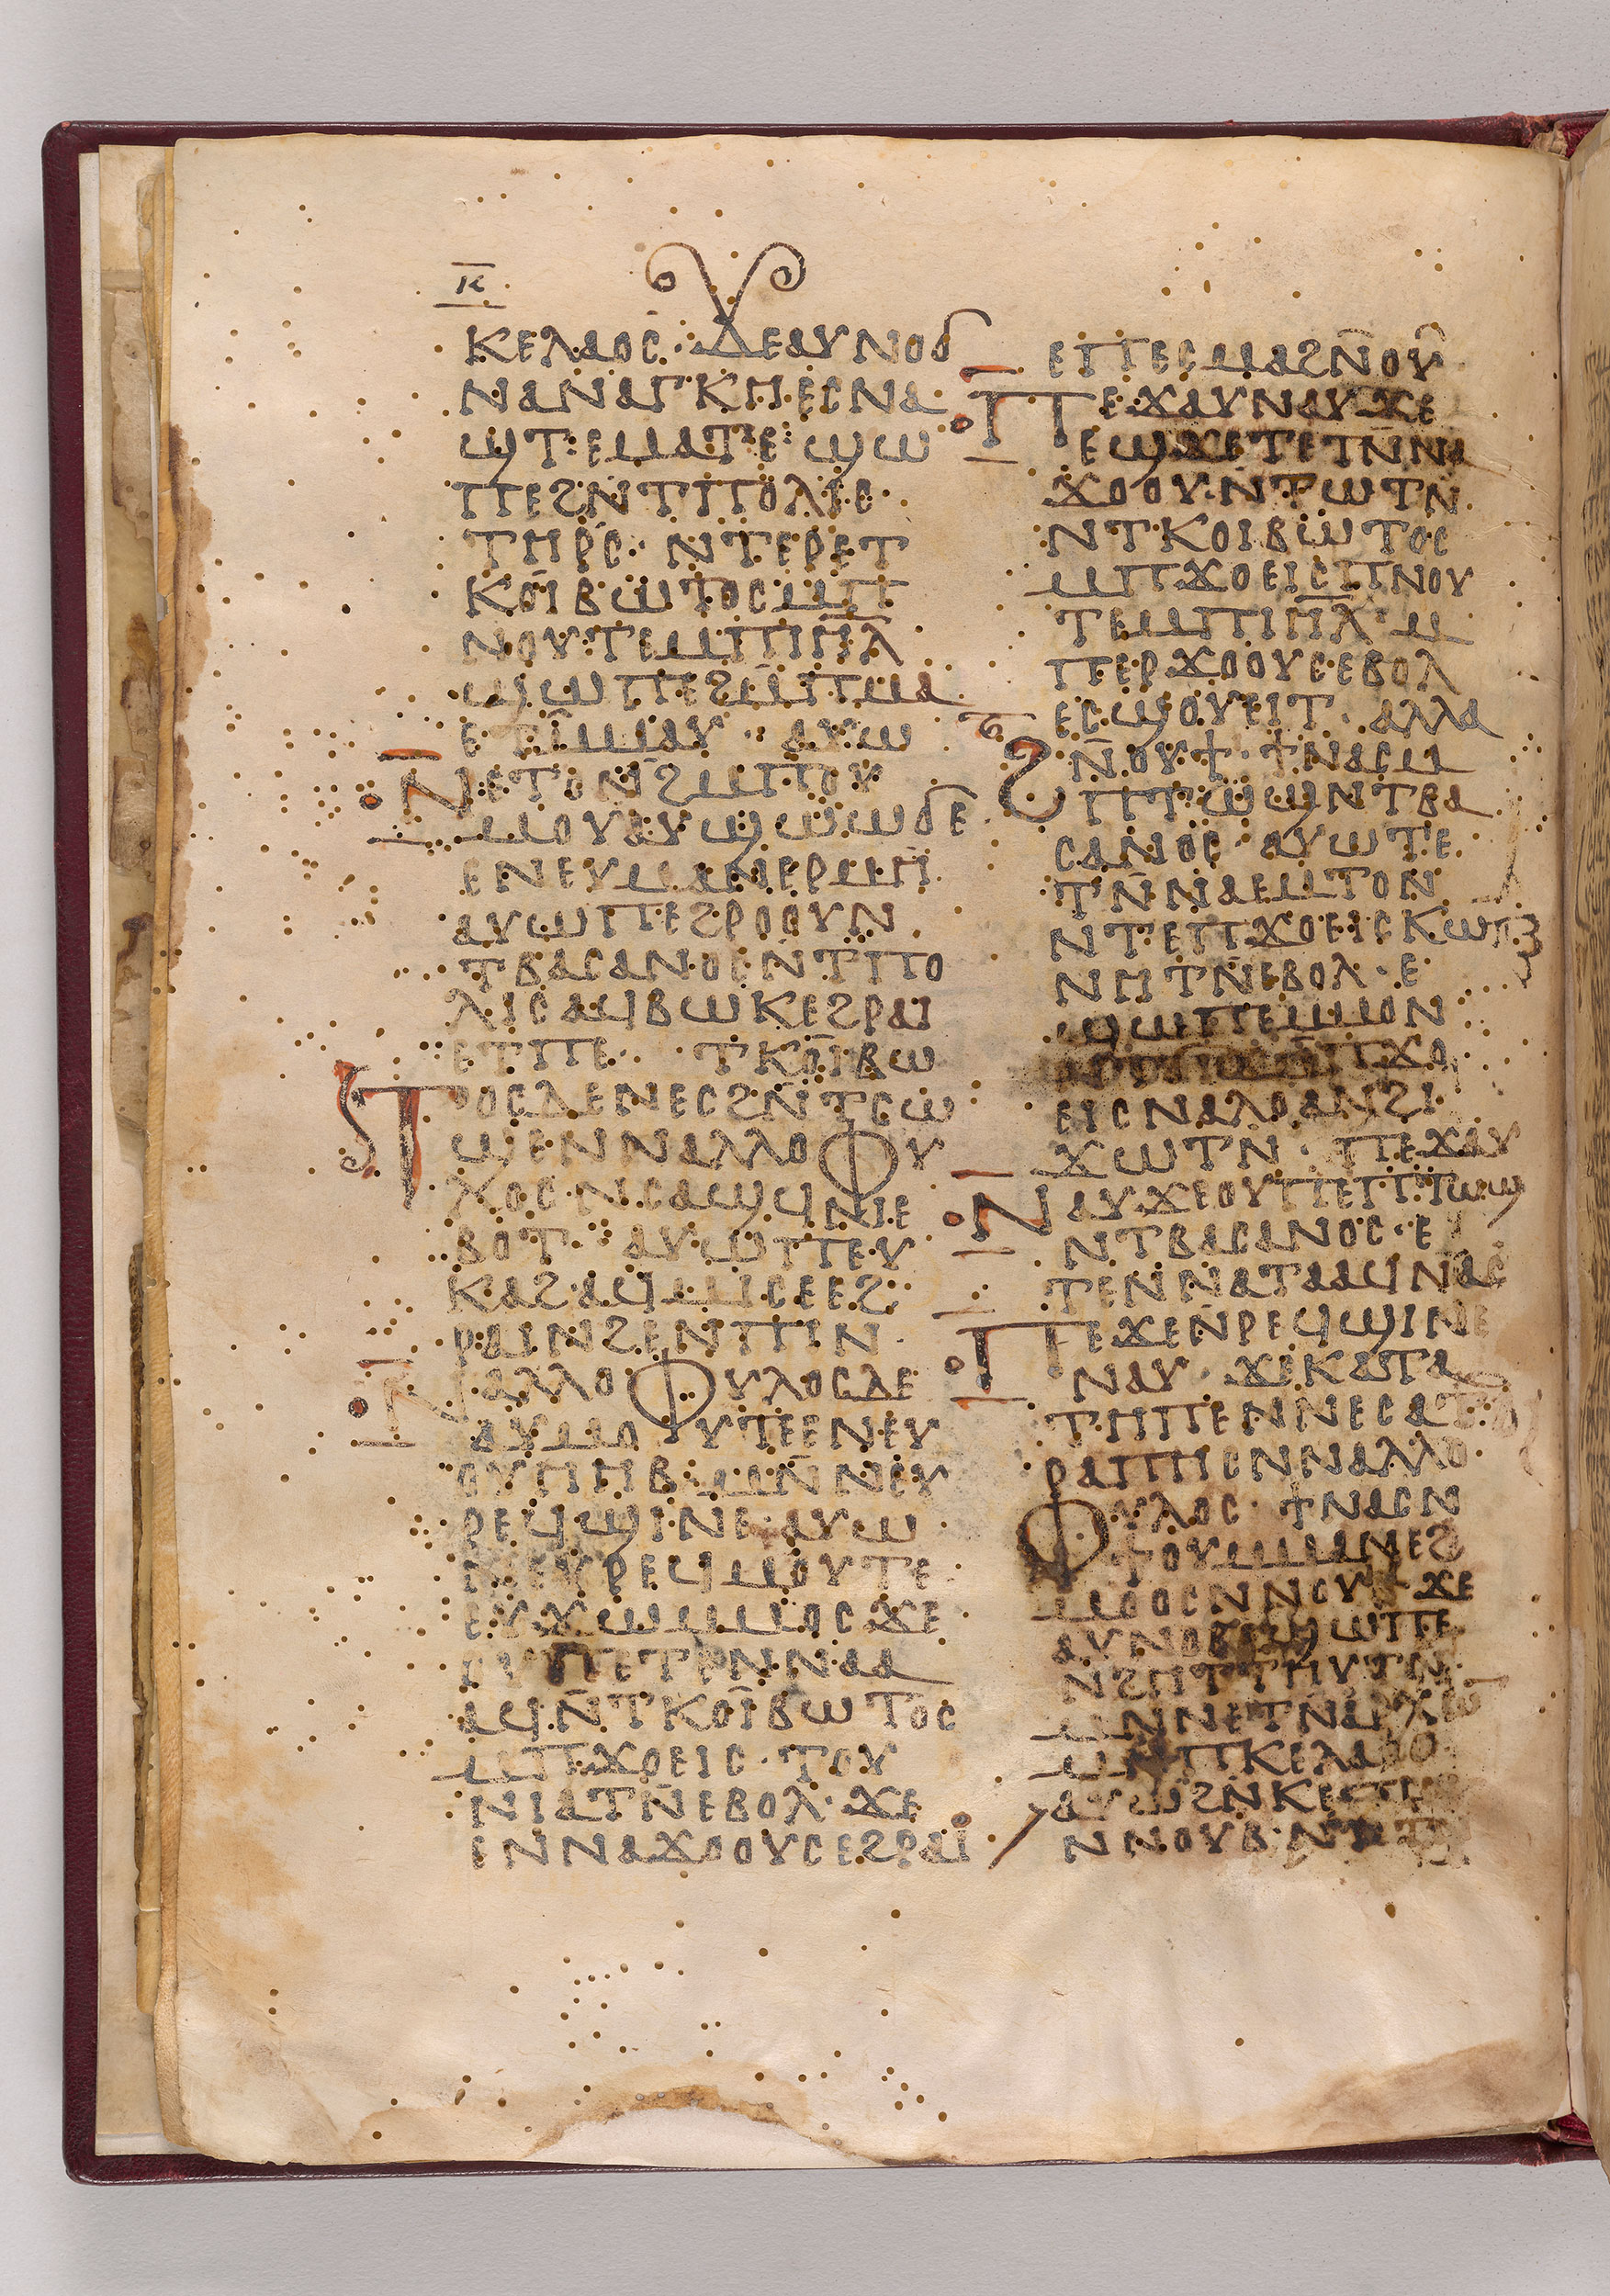 ⲕ̄
ⲕⲉⲗⲁⲟⲥ· ⲇⲉⲁⲩⲛⲟϭ
ⲛⲁⲛⲁⲅⲕⲏ·ⲉⲥⲛⲁ
ϣⲧ·ⲉⲙⲁⲧⲉ·ϣⲱ
ⲡⲉϩⲛ̄ⲧⲡⲟⲗⲓⲥ·
ⲧⲏⲣⲥ̄· ⲛ̄ⲧⲉⲣⲉⲧ
ⲕⲟⲓⲃⲱⲧⲟⲥⲙⲡ
ⲛⲟⲩⲧⲉⲙⲡⲓⲏ̄ⲗ̄
ϣⲱⲡⲉϩⲙ̄ⲡⲙⲁ
ⲉⲧⲙ̄ⲙⲁⲩ· ⲁⲩⲱ
ⲛⲉⲧⲟⲛϩ̄ⲙⲡⲟⲩ
ⲙⲟⲩⲁⲩϣⲱⲱϭⲉ
ⲉⲛⲉⲩⲙⲁⲛⲉⲣⲙⲏ
ⲁⲩⲱⲡⲉϩⲣⲟⲟⲩⲛ
ⲧⲃⲁⲥⲁⲛⲟⲥⲛ̄ⲧⲡⲟ
ⲗⲓⲥⲁϥⲃⲱⲕⲉϩⲣⲁⲓ
ⲉⲧⲡⲉ· ⲧⲕⲟⲓⲃⲱ
ⲧⲟⲥⲇⲉⲛⲉⲥϩⲛ̄ⲧⲥⲱ
ϣⲉⲛⲛⲁⲗⲗⲟⲫⲩ
ⲗⲟⲥ·ⲛⲥⲁϣϥⲛⲉ
ⲃⲟⲧ· ⲁⲩⲱⲡⲉⲩ
ⲕⲁϩ·ⲁϥⲙⲓⲥⲉⲉϩ
ⲣⲁⲓⲛϩⲉⲛⲡⲓⲛ
ⲛⲁⲗⲗⲟⲫⲩⲗⲟⲥⲇⲉ
ⲁⲩⲙⲟⲩⲧⲉⲉⲛⲉⲩ
ⲟⲩⲏⲏⲃ·ⲙⲛ̄ⲛⲉⲩ
ⲣⲉϥϣⲓⲛⲉ·ⲁⲩⲱ
ⲛⲉⲩⲣⲉϥⲙⲟⲩⲧⲉ
ⲉⲩϫⲱⲙⲙⲟⲥϫⲉ
ⲟⲩⲡⲉⲧⲛ̄ⲛⲁⲁ
ⲁϥⲛ̄ⲧⲕⲟⲓⲃⲱⲧⲟⲥ
ⲙⲡϫⲟⲉⲓⲥ· ⲧⲟⲩ
ⲛⲓⲁⲧⲛ̄ⲉⲃⲟⲗ·ϫⲉ
ⲉⲛⲛⲁϫⲟⲟⲩⲥⲉϩⲣⲁⲓ
ⲉⲡⲉⲥⲙⲁϩⲛ̄ⲟⲩ
ⲡⲉϫⲁⲩⲛⲁⲩϫⲉ
ⲉϣϫⲉⲧⲉⲧⲛ̄ⲛⲁ
ϫⲟⲟⲩ·ⲛ̄ⲧⲱⲧⲛ̄
ⲛⲧⲕⲟⲓⲃⲱⲧⲟⲥ
ⲙⲡϫⲟⲉⲓⲥⲡⲛⲟⲩ
ⲧⲉⲙⲡⲓⲏ̄ⲗ̄·ⲙ
ⲡⲉⲣϫⲟⲟⲩⲥⲉⲃⲟⲗ
ⲉⲥϣⲟⲩⲉⲓⲧ· ⲁⲗⲗⲁ
ϩⲛ̄ⲟⲩϯ·ϯⲛⲁⲥⲙ
ⲡⲧⲱϣⲛⲧⲃⲁ
ⲥⲁⲛⲟⲥ· ⲁⲩⲱⲧⲉ
ⲧⲛ̄ⲛⲁⲉⲙⲧⲟⲛ
ⲛⲧⲉⲡϫⲟⲉⲓⲥⲕⲱ
ⲛⲏⲧⲛ̄ⲉⲃⲟⲗ·ⲉ
ϣⲱⲡⲉⲙⲙⲟⲛ
ⲡϫⲟ
ⲉⲓⲥⲛⲁⲗⲟⲁⲛϩⲓ
ϫⲱⲧⲛ̄· ⲡⲉϫⲁⲩ
ⲛⲁⲩϫⲉⲟⲩⲡⲉⲡⲧⲱϣ
ⲛⲧⲃⲁⲥⲁⲛⲟⲥ·ⲉ
ⲧⲉⲛⲛⲁⲧⲁⲁϥⲛⲁⲥ
ⲡⲉϫⲉⲛ̄ⲣⲉϥϣⲓⲛⲉ
ⲛⲁⲩ· ϫⲉⲕⲁⲧⲁ
ⲧⲏⲡⲉⲛⲛⲉⲥⲁⲧ
ⲣⲁⲡⲏⲥⲛⲛⲁⲗⲗⲟ
ⲫⲩⲗⲟⲥ·ϯⲛⲁⲥⲛ
ϯⲟⲩⲙⲙⲛⲉϩ
ⲙⲟⲟⲥⲛⲛⲟⲩ ϫⲉ
ⲁⲩⲛⲟⲃⲉϣⲱⲡⲉ
ⲛϩⲏⲧⲧⲏⲩⲧⲛ̄
ⲙⲛⲛⲉⲧⲛⲁⲣⲭⲱ
ⲙⲛⲡⲕⲉⲗⲁⲟⲥ
ⲁⲩⲱϩⲛ̄ⲕⲉ
ⲛⲛⲟⲩⲃ·